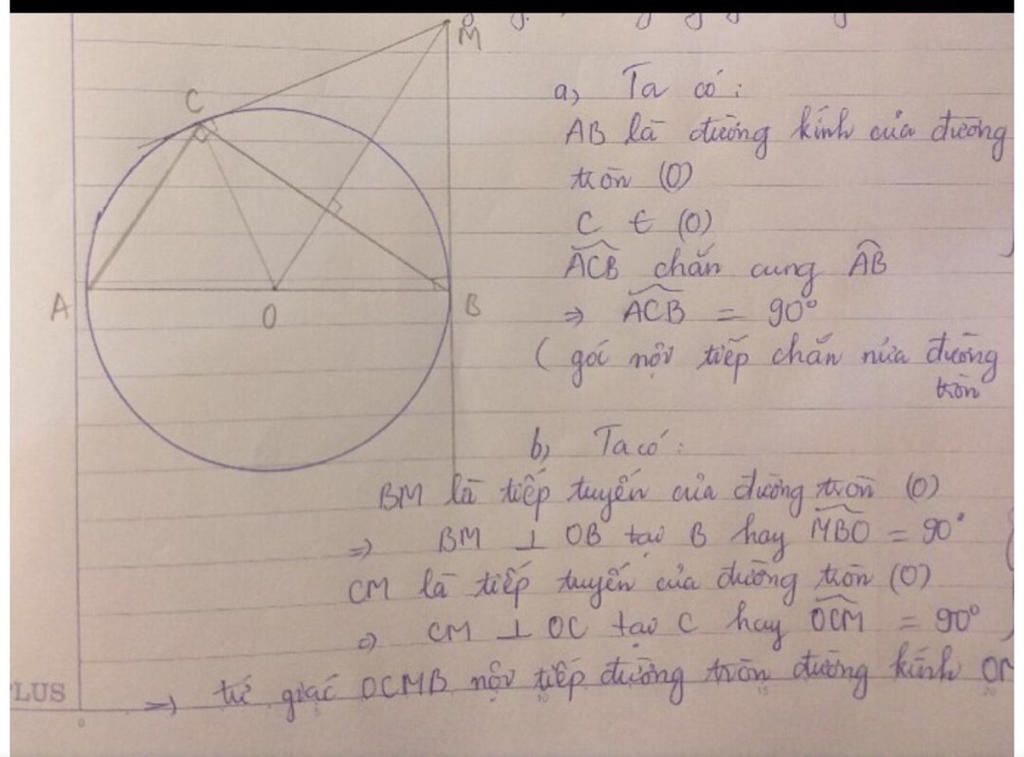 M
C
A
O
B
a) Ta có:
AB là đường kính của đường
tròn (O)
C ∈ (O)
ACB chắn cung AB
⇒ ACB = 90°
( góc nội tiếp chắn nửa đường
tròn
b) Ta có:
BM là tiếp tuyến của đường tròn (O)
⇒ BM ⊥ OB tại B hay MBO = 90°
CM là tiếp tuyến của đường tròn (O)
⇒ CM ⊥ OC tại C hay OCM = 90°
⇒ tứ giác OCMB nội tiếp đường tròn đường kính OM
PLUS
0 5 10 15 20